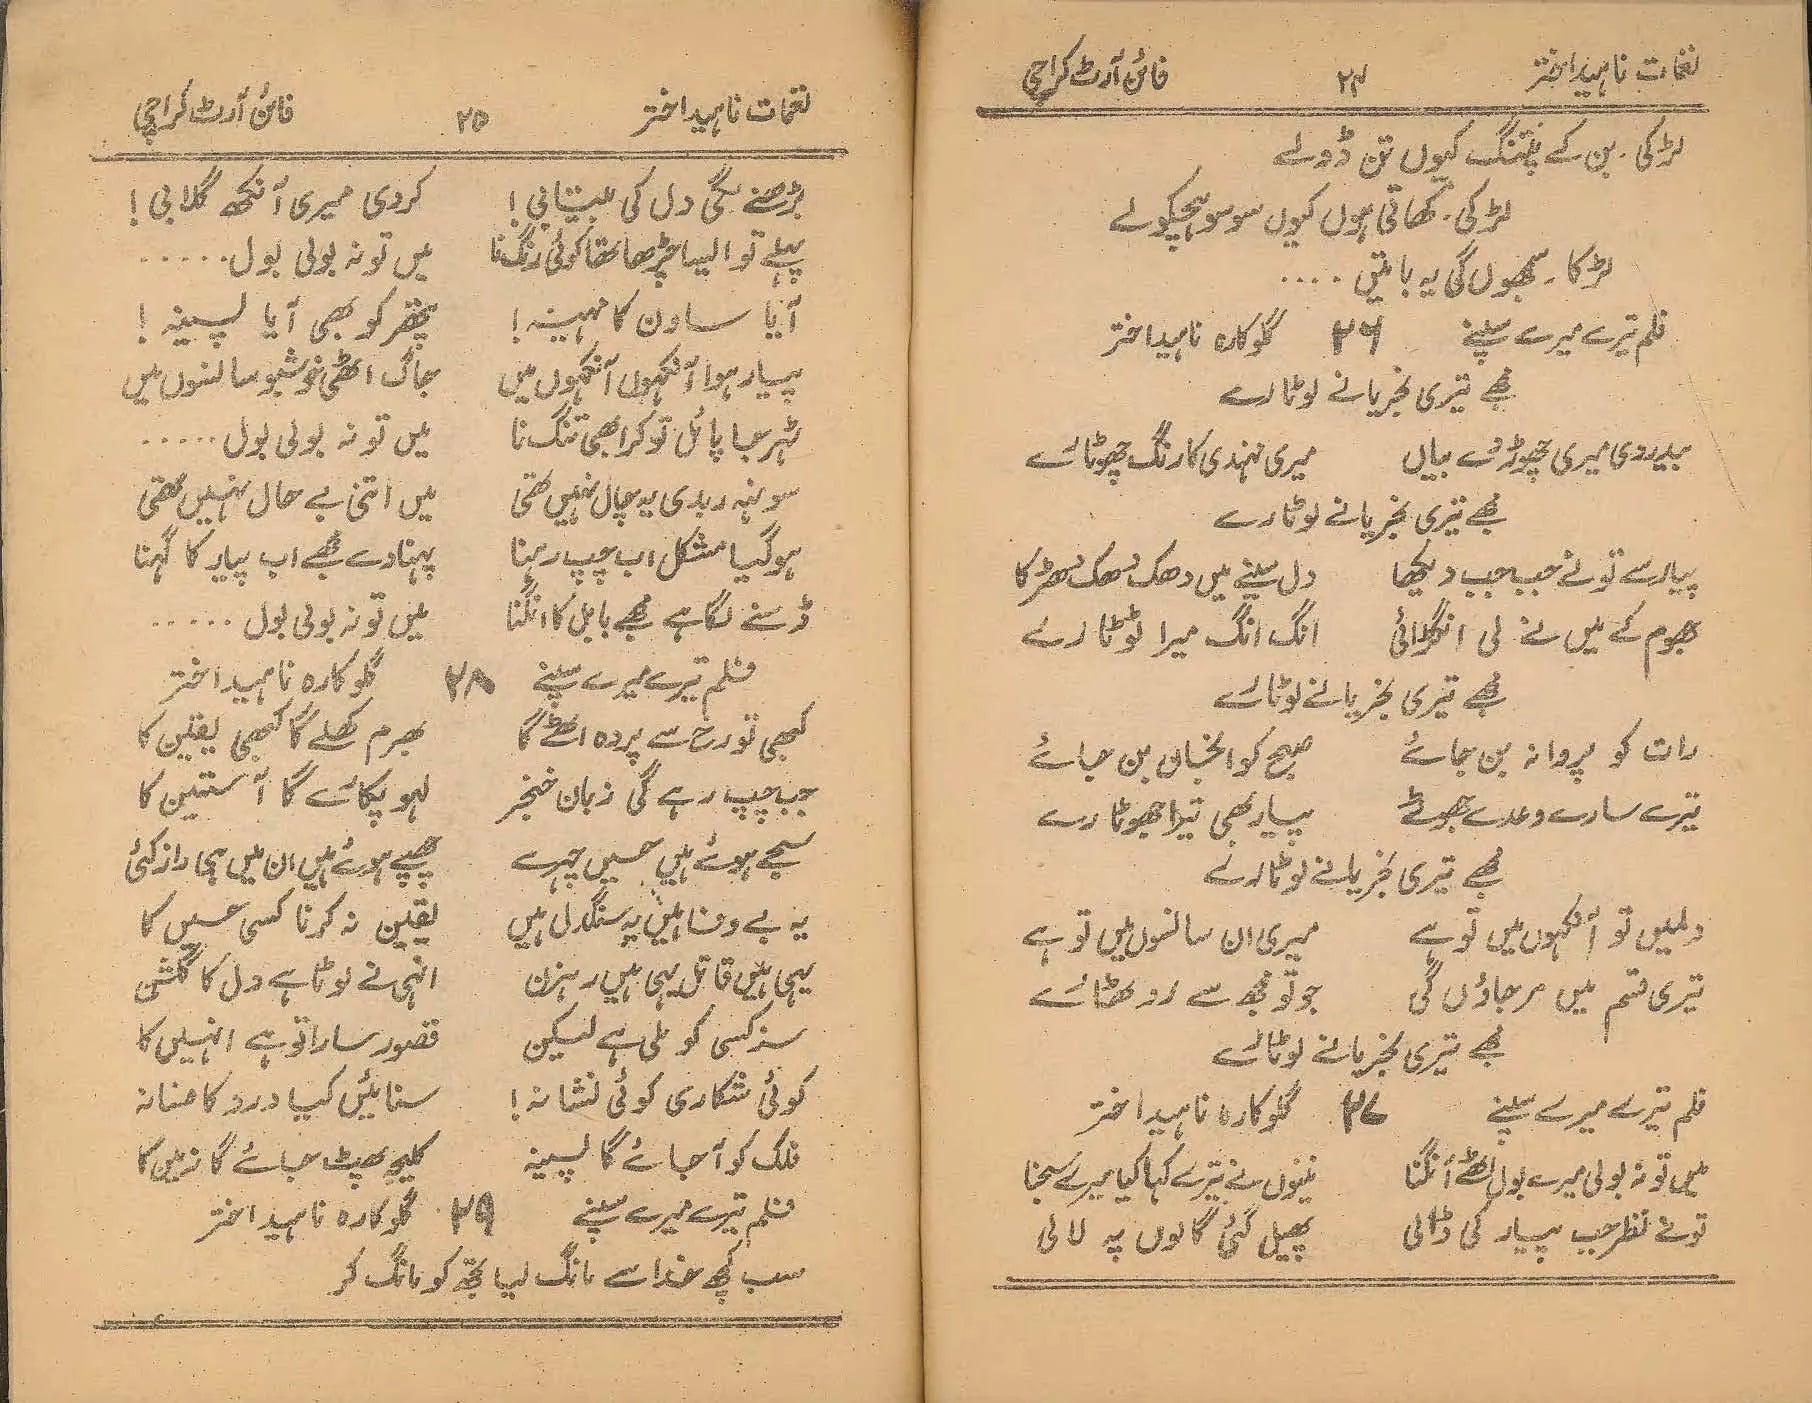 نغمات ناہید اختر ۲۴ فائن آرٹ کراچی
لڑکی۔ بن کے پتنگ کیوں تن ڈولے
لڑکی۔ کھاتی ہوں کیوں سو سو ہچکولے
لڑکا۔ سمجھوں گی یہ باتیں ....
فلم تیرے میرے سپنے ۲۶ گلوکارہ ناہید اختر
مجھے تیری نجریا نے لوٹا رے
بیدردی میری چھوڑ دے بیاں میری مہندی کا رنگ چھوٹا رے
مجھے تیری نجریا نے لوٹا رے
پیار سے تو نے جب جب دیکھا دل سینے میں دھک دھک دھڑکا
جھوم کے میں نے لی انگڑائی انگ انگ میرا ٹوٹا رے
مجھے تیری نجریا نے لوٹا رے
رات کو پروانہ بن جائے صبح کو انجان بن جائے
تیرے سارے وعدے جھوٹے پیار بھی تیرا جھوٹا رے
مجھے تیری نجریا نے لوٹا رے
دلمیں تو آنکہوں میں تو ہے میری ان سانسوں میں تو ہے
تیری قسم میں مر جاؤں گی جو تو مجھ سے روٹھا رے
مجھے تیری نجریا نے لوٹا رے
فلم تیرے میرے سپنے ۲۷ گلوکارہ ناہید اختر
میں تو نہ بولی میرے بول اٹھے انگنا نینوں نے تیرے کہا کیا میرے سجنا
تونے نظر جب پیار کی ڈالی پھیل گئی گالوں پہ لالی
نغمات ناہید اختر ۲۵ فائن آرٹ کراچی
بڑھنے لگی دل کی بیتابی! کردی میری آنکھ گلابی!
پہلے تو ایسا چڑھا تھا کوئی رنگ نا میں تو نہ بولی بول .....
آیا ساون کا مہینہ! پتھر کو بھی آیا پسینہ!
پیار ہوا آنکہوں آنکہوں میں جاگ اٹھی خوشبو سانسوں میں
ٹہر جا پائل تو کر ابھی تنگ نا میں تو نہ بولی بول .....
سوہنہ ربدی یہ چال نہیں تھی میں اتنی بے حال نہیں تھی
ہوگیا مشکل اب چپ رہنا پہنا دے مجھے اب پیار کا گہنا
ڈسنے لگا ہے مجھے بابل کا انگنا میں تو نہ بولی بول .....
فلم تیرے میرے سپنے ۲۸ گلوکارہ ناہید اختر
کبھی تو رخ سے پردہ اٹھے گا بھرم کھلے گا کبھی یقین کا
جب چپ رہے گی زبان خنجر لہو پکارے گا آستین کا
سجے ہوئے ہیں حسیں چہرے چھپے ہوئے ہیں ان میں ہی راز کئی
یہ بے وفا ہیں یہ سنگدل ہیں یقین نہ کرنا کسی حسیں کا
یہی ہیں قاتل یہی ہیں رہزن انہی نے لوٹا ہے دل کا گلشن
سزا کسی کو ملی ہے لیکن قصور سارا تو ہے انہیں کا
کوئی شکاری کوئی نشانہ! سنائیں کیا درد کا فسانہ
فلک کو آجائے گا پسینہ کلیجہ پھٹ جائے گا زمین کا
فلم تیرے میرے سپنے ۲۹ گلوکارہ ناہید اختر
سب کچھ خدا سے مانگ لیا تجھ کو مانگ کر